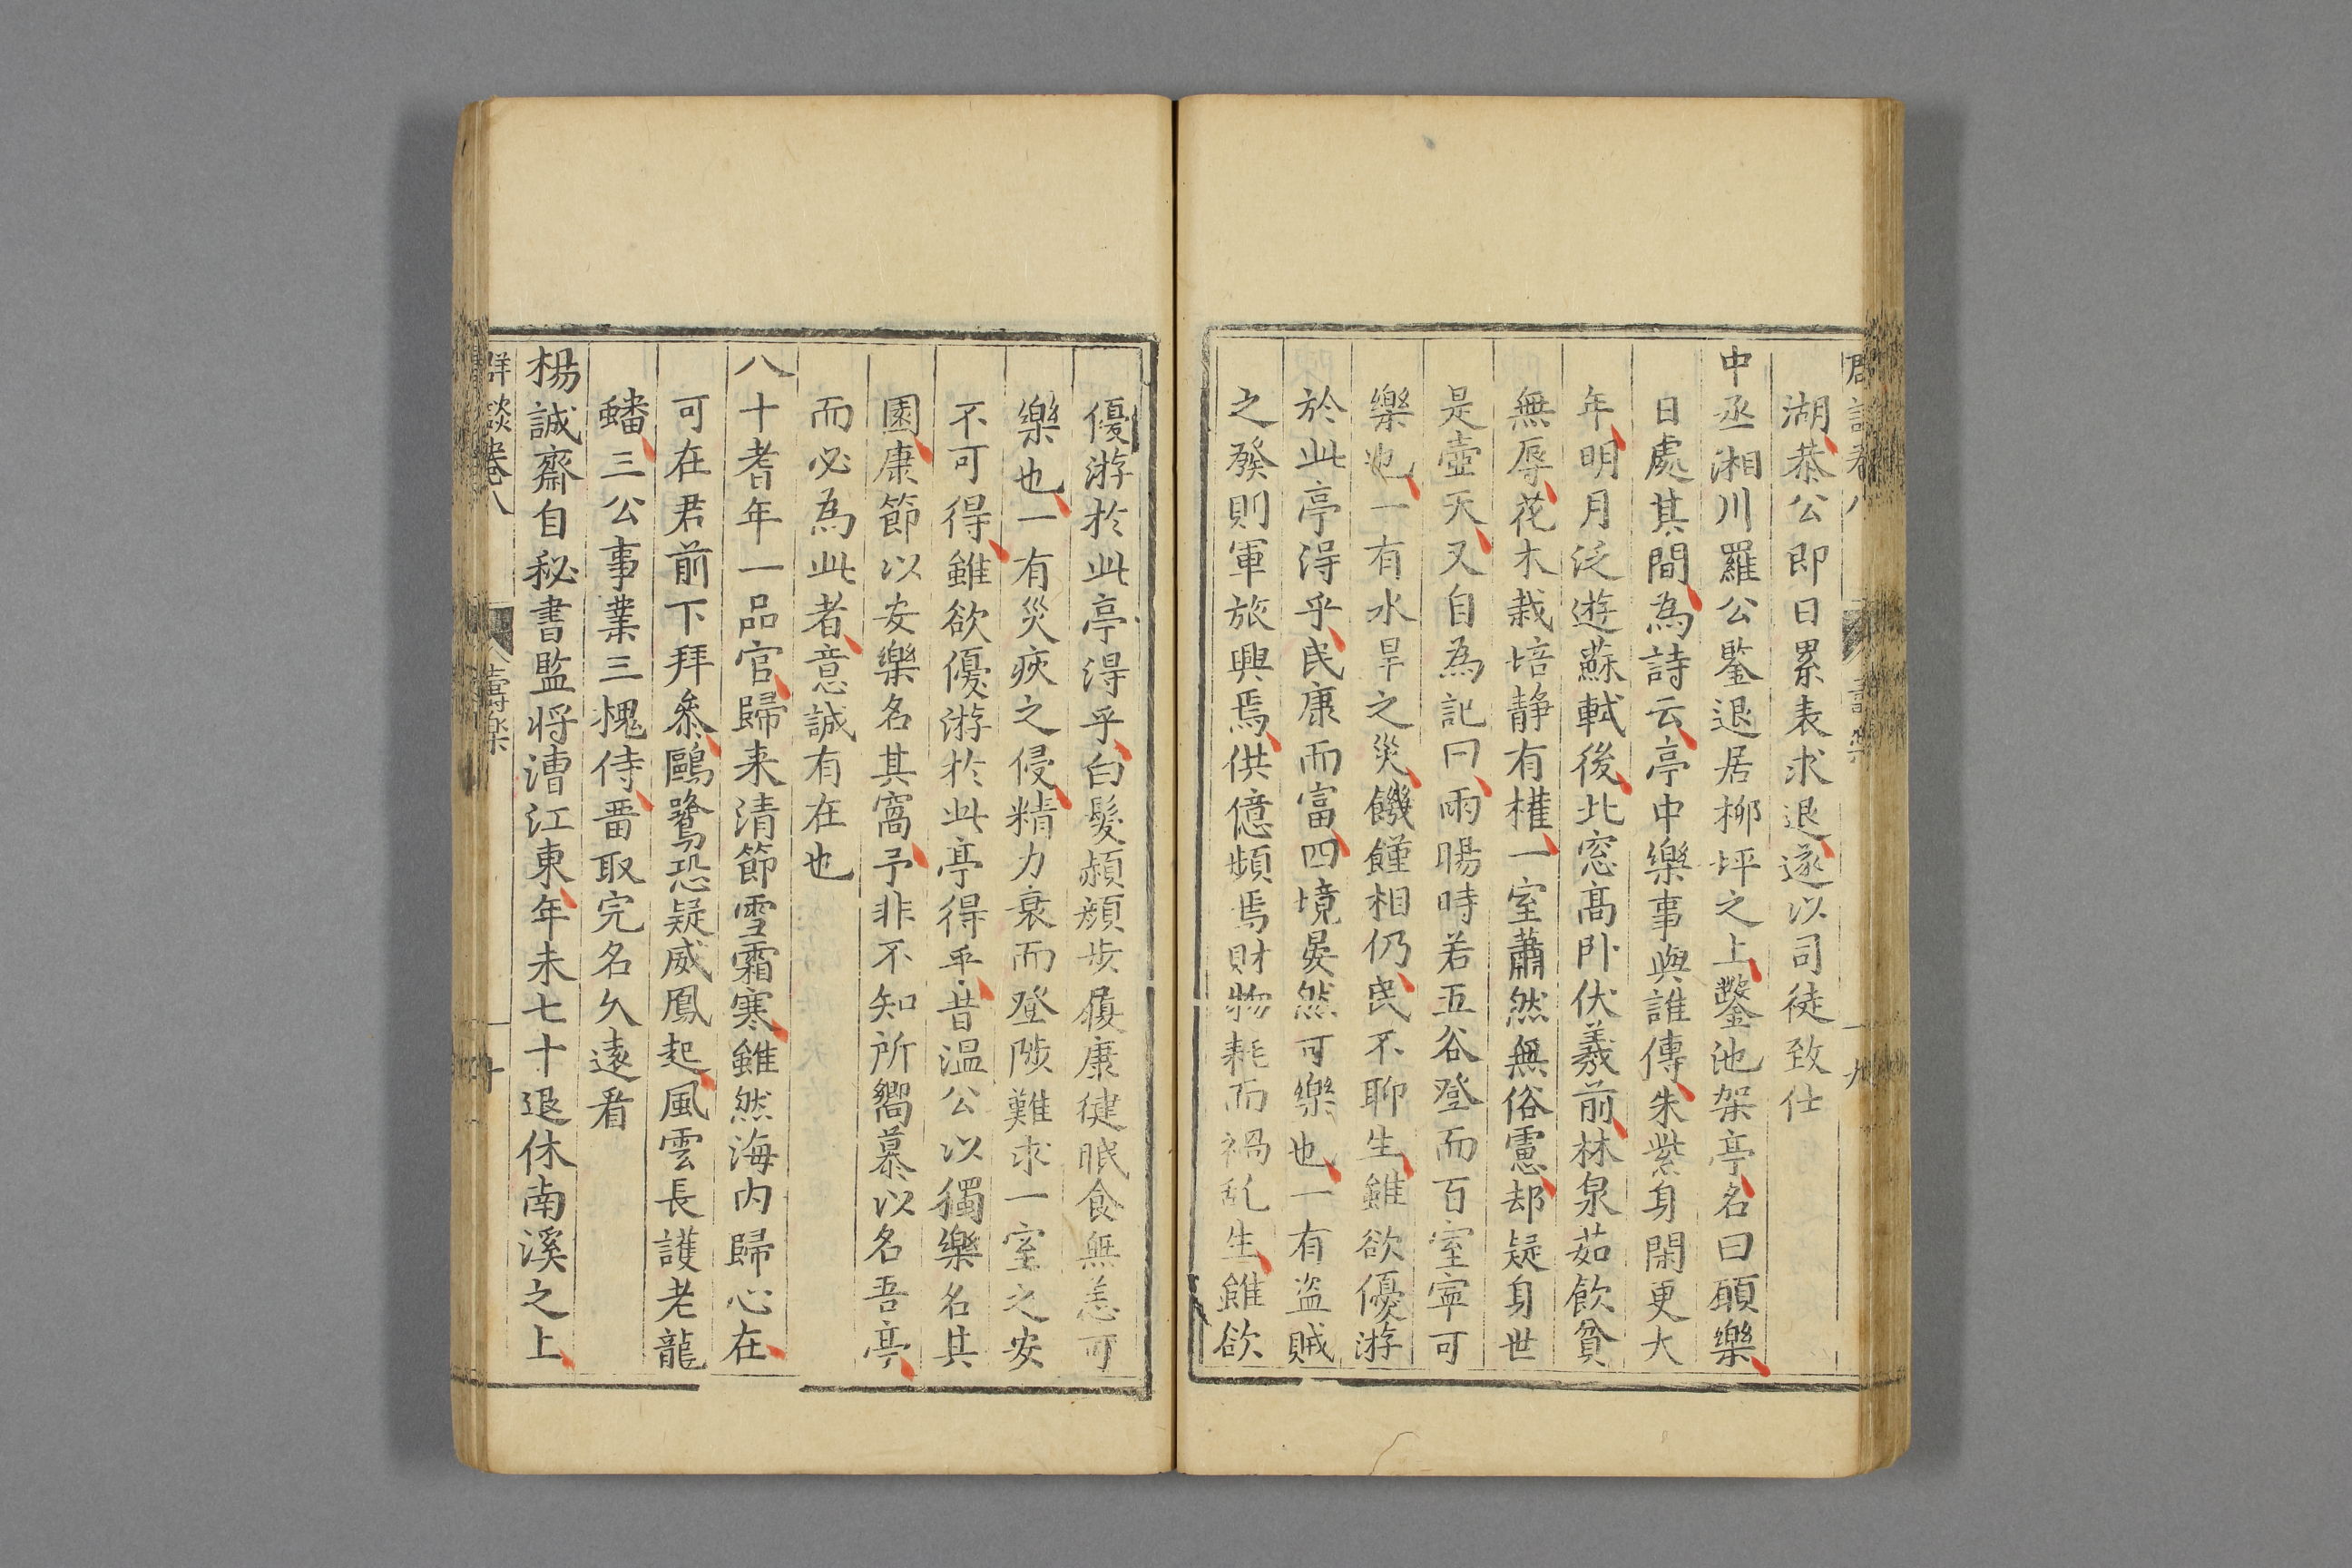 湖恭公即日累表求退遂以司徒致仕
中丞湘川羅公鑒退居柳坪之上鑿池架亭名曰頤樂
日處其間為詩云亭中樂事與誰傳朱紫身閑更大
年明月泛遊蘇軾後北窓高卧伏羲前林泉茹飲貧
無辱花木栽培静有權一室蕭然無俗慮却疑身世
是壺天又自為記曰雨暘時若五谷登而百室寜可
樂也一有水旱之災饑饉相仍民不聊生雖欲優游
於此亭得乎民康而富四境晏然可樂也一有盗賊
之發則軍旅興焉供億頻焉財物耗而禍乱生雖欲
優游於此亭得乎白髮頳顔步履康健眠食無恙可
樂也一有災疾之侵精力衰而登陟難求一室之安
不可得雖欲優游於此亭得乎昔温公以獨樂名其
園康節以安樂名其窩予非不知所嚮慕以名吾亭
而必為此者意誠有在也
八十耆年一品官歸来清節雪霜寒雖然海内歸心在
可在君前下拜叅鷗鷺恐疑威鳳起風雲長護老龍
蟠三公事業三槐侍畨取完名久遠看
楊誠齋自秘書監将漕江東年未七十退休南溪之上
群談卷八 壽樂 十